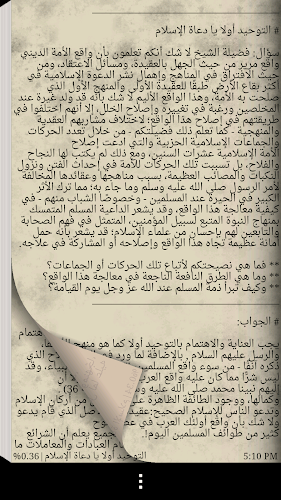 # التوحيد أولا يا دعاة الإسلام
سؤال: فضيلة الشيخ لا شك أنكم تعلمون بأن واقع الأمة الديني
واقع مرير من حيث الجهل بالعقيدة، ومسائل الاعتقاد، ومن
حيث الافتراق في المناهج وإهمال نشر الدعوة الإسلامية في
أكثر بقاع الأرض طبقا للعقيدة الأولى والمنهج الأول الذي
صلحت به الأمة، وهذا الواقع الأليم لا شك بأنه قد ولد غيرة عند
المخلصين ورغبة في تغييره وإصلاح الخلل، إلا أنهم اختلفوا في
طريقتهم في إصلاح هذا الواقع؛ لاختلاف مشاربهم العقدية
والمنهجية - كما تعلم ذلك فضيلتكم - من خلال تعدد الحركات
والجماعات الإسلامية الحزبية والتي ادعت إصلاح
الأمة الإسلامية عشرات السنين، ومع ذلك لم يكتب لها النجاح
والفلاح، بل تسببت تلك الحركات للأمة في إحداث الفتن، ونزول
النكبات والمصائب العظيمة، بسبب مناهجها وعقائدها المخالفة
لأمر الرسول صلى الله عليه وسلم وما جاء به؛ مما ترك الأثر
الكبير في الحيرة عند المسلمين - وخصوصا الشباب منهم - في
كيفية معالجة هذا الواقع، وقد يشعر الداعية المسلم المتمسك
بمنهاج النبوة المتبع لسبيل المؤمنين، المتمثل في فهم الصحابة
والتابعين لهم بإحسان من علماء الإسلام؛ قد يشعر بأنه حمل
أمانة عظيمة تجاه هذا الواقع وإصلاحه أو المشاركة في علاجه.
** فما هي نصيحتكم لأتباع تلك الحركات أو الجماعات؟
** وما هي الطرق النافعة الناجعة في معالجة هذا الواقع؟
** وكيف تبرأ ذمة المسلم عند الله عز وجل يوم القيامة؟
# الجواب:
يجب العناية والاهتمام بالتوحيد أولا كما هو منهج
والرسل عليهم السلام , بالإضافة لما ورد في الذي
ذكره آنفا - من سوء واقع المسلمين
ليس شرًا مما كان عليه واقع العرب
إليهم نبينا محمد صلى الله عليه و (36)
وكمالها، ووجود الطائفة الظاهرة من أركان الإسلام
وتدعو الناس للإسلام الصحيح:عقيد الذي قام يدعو
ولا شك بأن واقع أولئك العرب في عصر
كثير من طوائف المسلمين اليوم!. جميع يعلم أن الشرائع
العبادات والمعاملات ما
%0.36 | التوحيد أولا يا دعاة الإسلام
5:10 PM